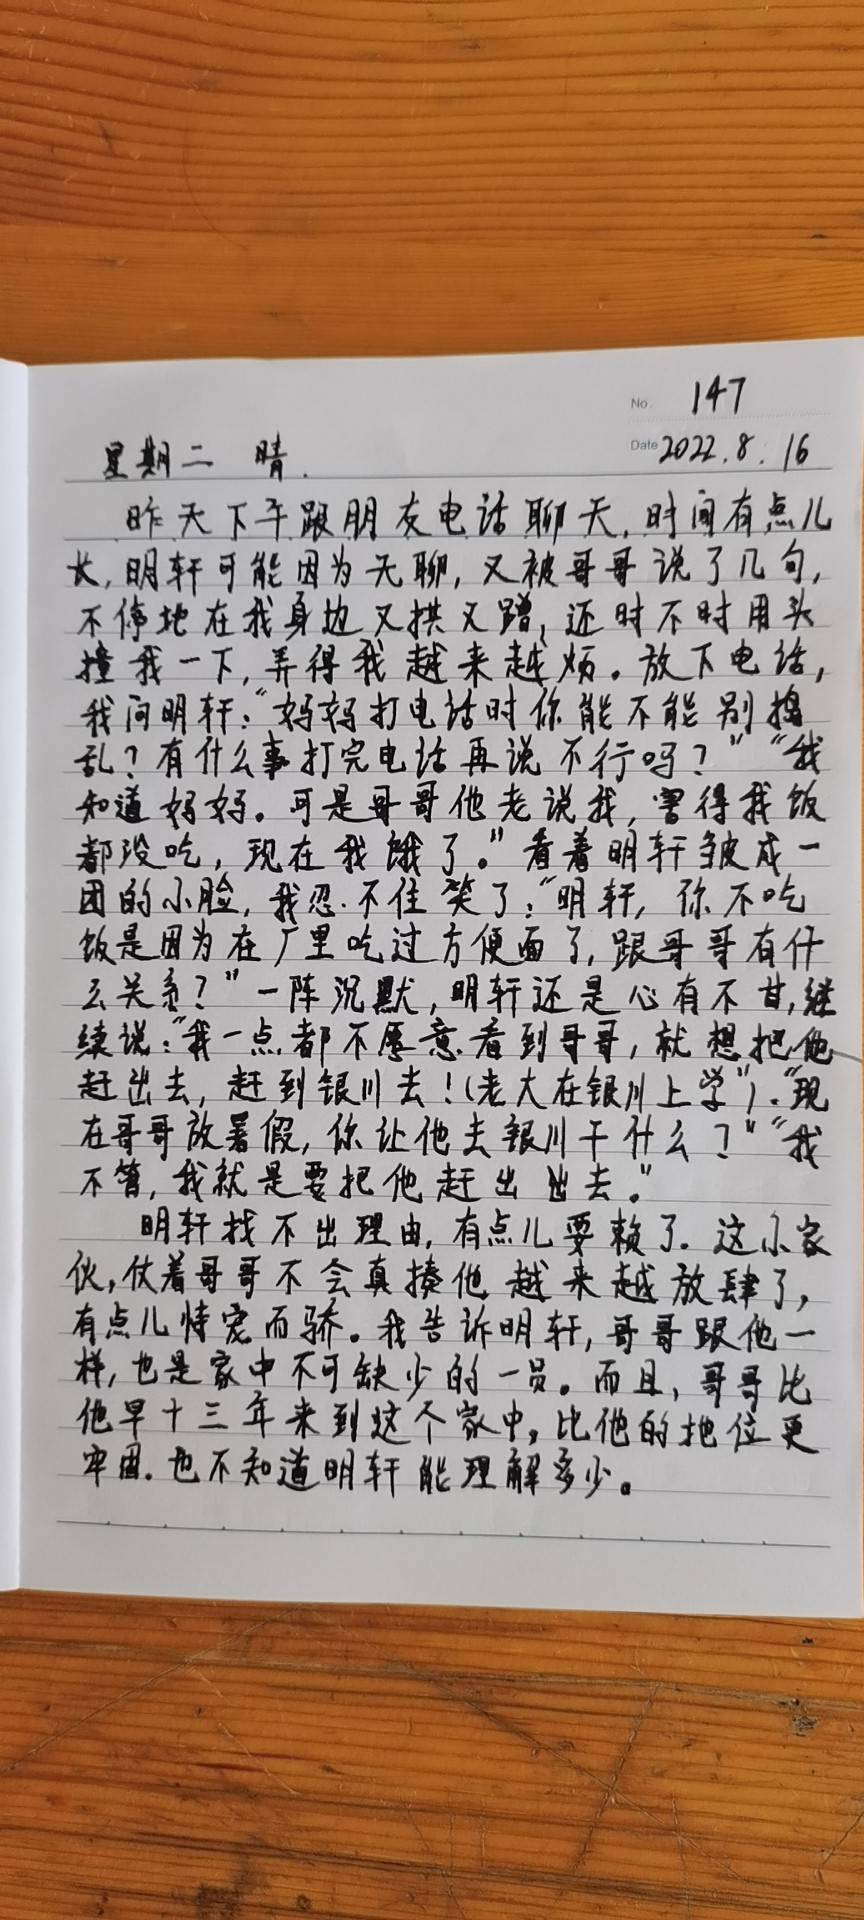 No. 147
星期二 晴. Date 2022.8.16
昨天下午跟朋友电话聊天,时间有点儿
长,明轩可能因为无聊,又被哥哥说了几句,
不停地在我身边又拱又蹭,还时不时用头
撞我一下,弄得我越来越烦。放下电话,
我问明轩:“妈妈打电话时你能不能别捣
乱?有什么事打完电话再说不行吗?”“我
知道妈妈。可是哥哥他老说我,害得我饭
都没吃,现在我饿了。”看着明轩皱成一
团的小脸,我忍不住笑了:“明轩,你不吃
饭是因为在厂里吃过方便面了,跟哥哥有什
么关系?”一阵沉默,明轩还是心有不甘,继
续说:“我一点都不愿意看到哥哥,就想把他
赶出去,赶到银川去!(老大在银川上学”).“现
在哥哥放暑假,你让他去银川干什么?”“我
不管,我就是要把他赶出出去。”
明轩找不出理由,有点儿耍赖了.这小家
伙,仗着哥哥不会真揍他越来越放肆了,
有点儿恃宠而骄。我告诉明轩,哥哥跟他一
样,也是家中不可缺少的一员。而且,哥哥比
他早十三年来到这个家中,比他的地位更
牢固.也不知道明轩能理解多少。